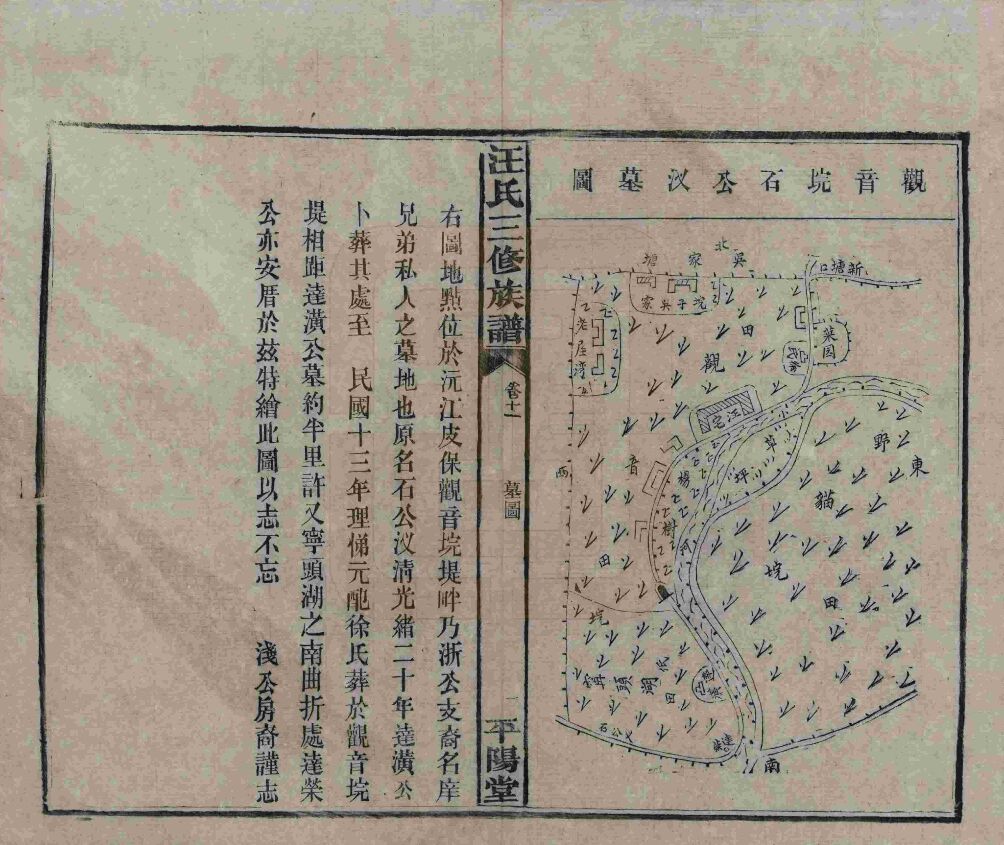 觀音垸石公汊墓圖
北
吳家塘
新塘口
垸子吳家
老屋灣
菜園
田
觀
汪宅
音
草坪
楊樹
河
西
東
野貓垸田
田
垸
寗頭湖田
石公汊
南
右圖地點位於沅江皮保觀音垸堤畔乃浙公支裔名庠
兄弟私人之墓地也原名石公汊淸光緒二十年達潢公
卜葬其處至 民國十三年理悌元配徐氏葬於觀音垸
堤相距達潢公墓約半里許又寧頭湖之南曲折處達榮
公亦安厝於兹特繪此圖以志不忘 淺公房裔謹志
汪氏三修族譜
卷十一
墓圖
一
平陽堂